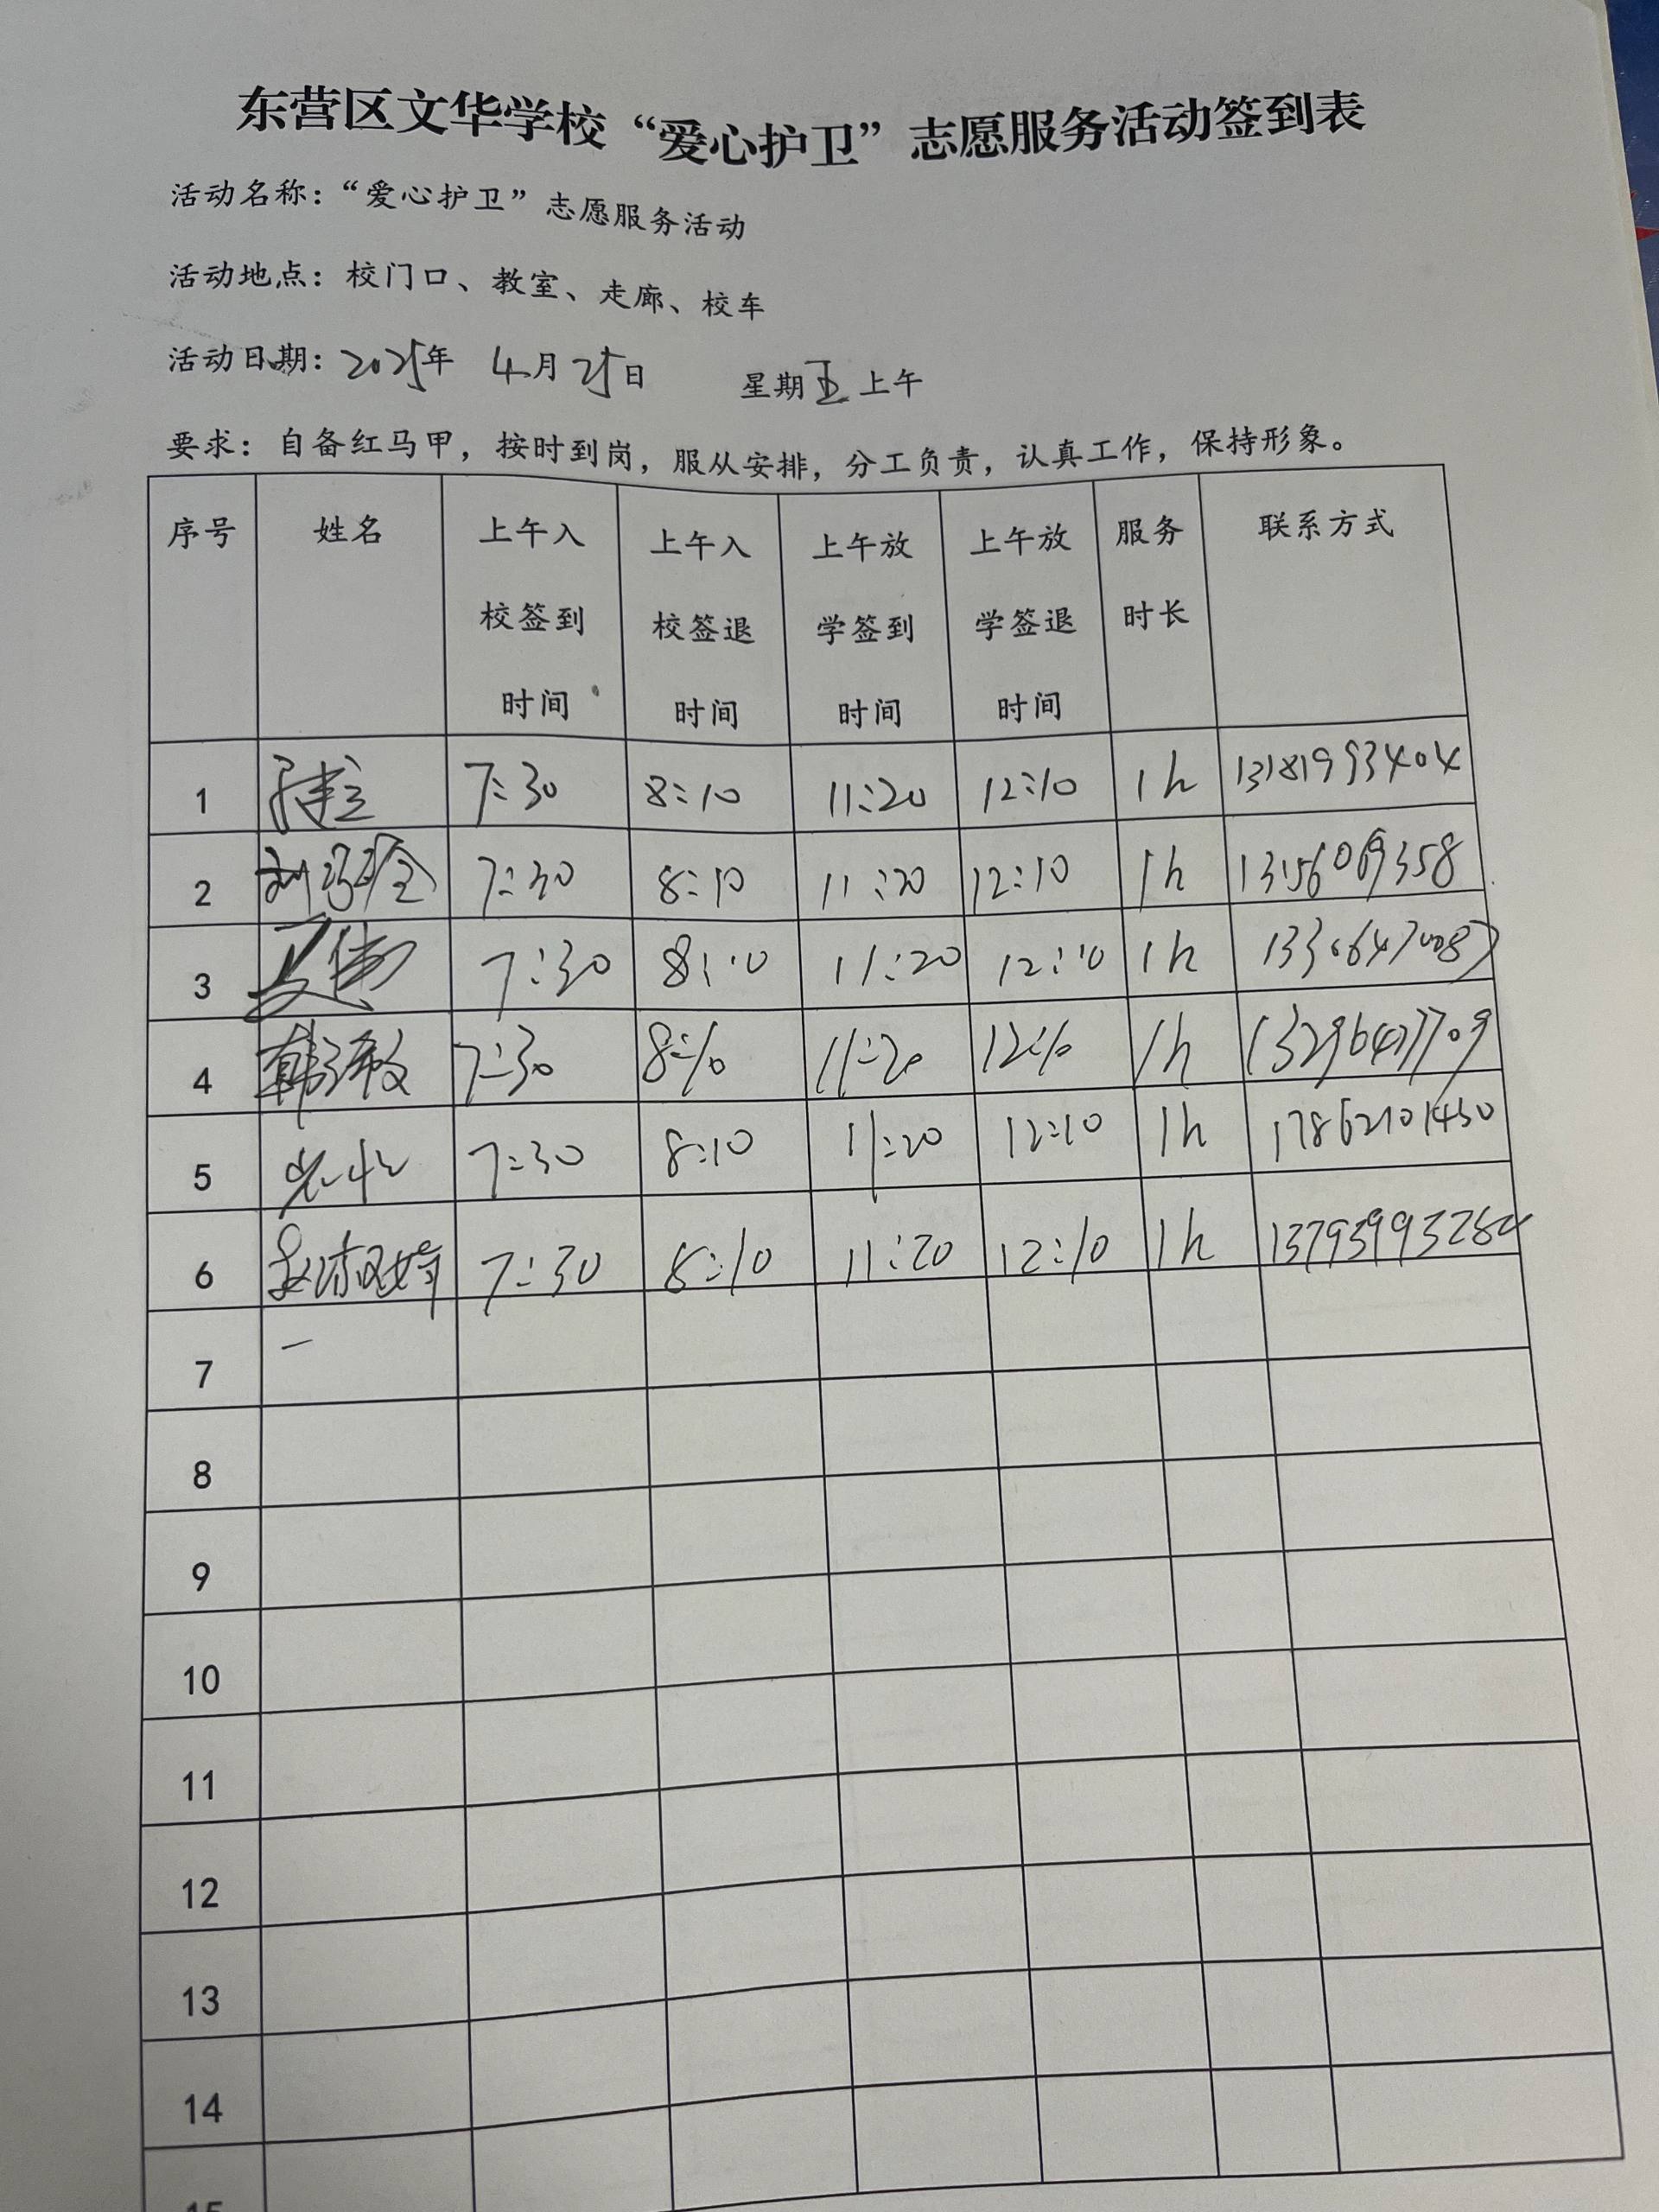 东营区文华学校“爱心护卫”志愿服务活动签到表
活动名称：“爱心护卫”志愿服务活动
活动地点：校门口、教室、走廊、校车
活动日期：2025年 4月25日 星期五上午
要求：自备红马甲，按时到岗，服从安排，分工负责，认真工作，保持形象。
序号 姓名 上午入校签到时间 上午入校签退时间 上午放学签到时间 上午放学签退时间 服务时长 联系方式
1 7:30 8:10 11:20 12:10 1h 13181993404
2 7:30 8:10 11:20 12:10 1h 13156069358
3 7:30 8:10 11:20 12:10 1h
4 韩 敏 7:30 8:10 11:20 12:10 1h
5 7:30 8:10 11:20 12:10 1h 17862101450
6 赵 婷 7:30 8:10 11:20 12:10 1h
7
8
9
10
11
12
13
14
15